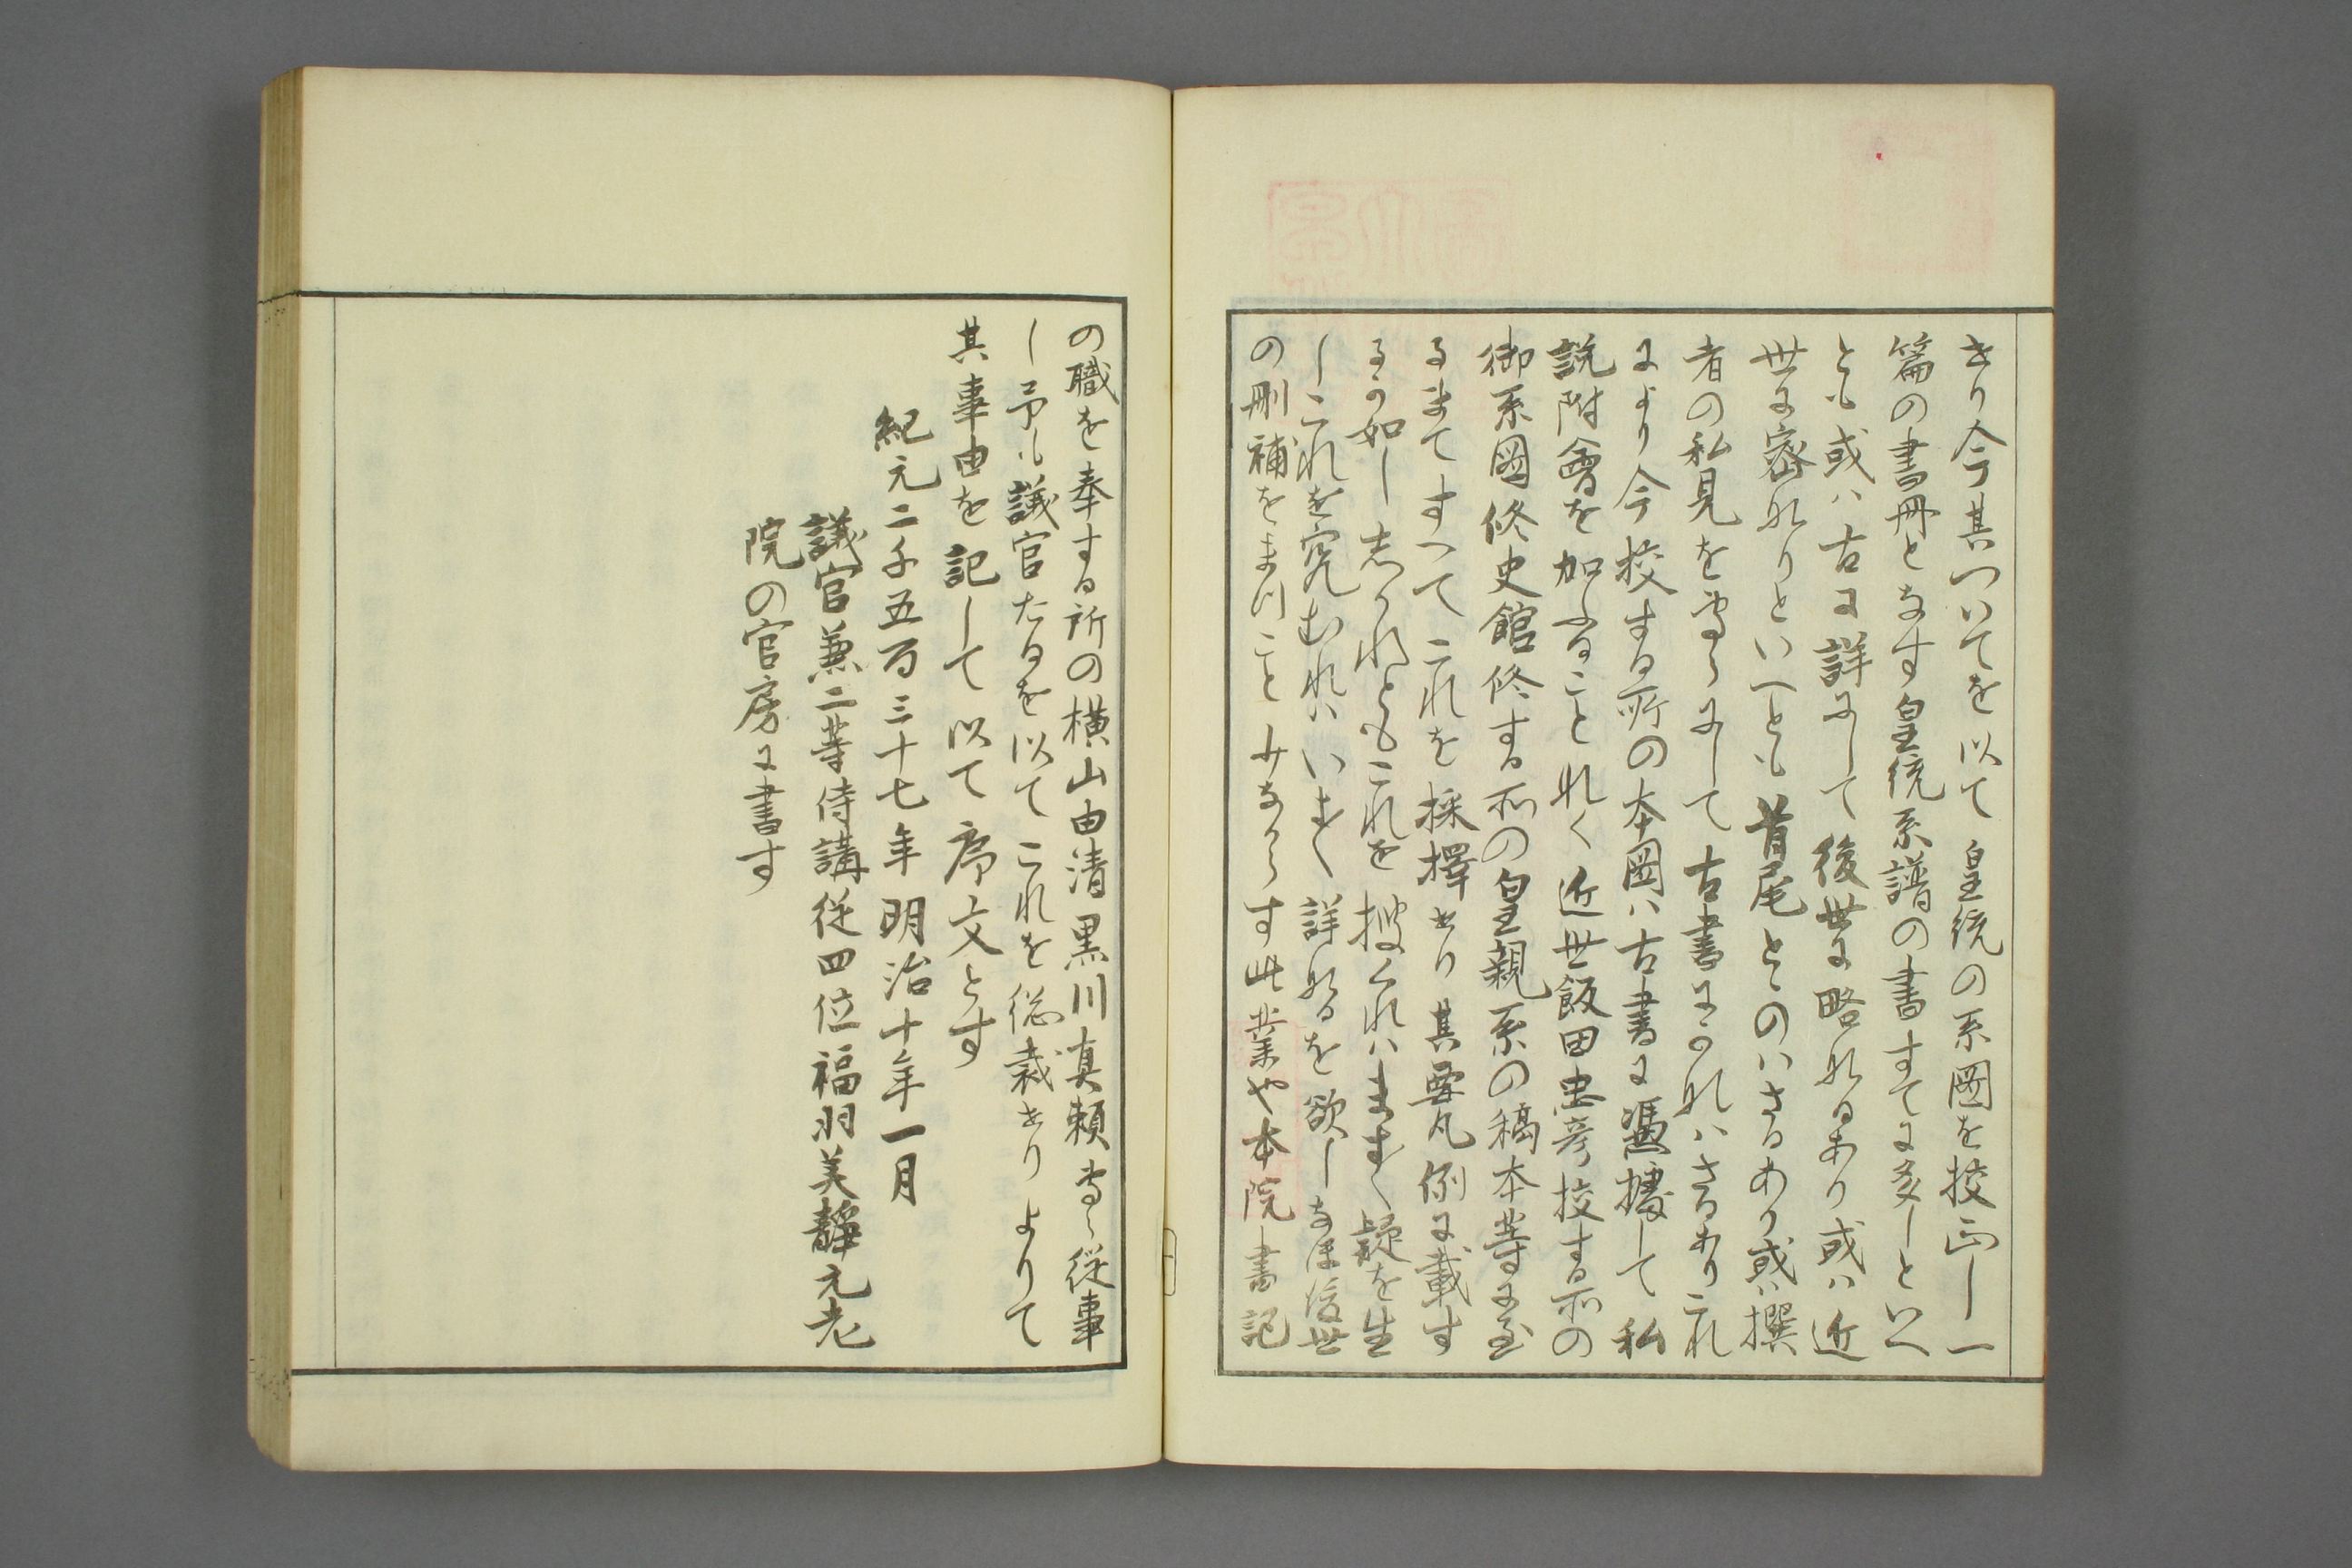 せり今其ついてを以て皇統の系圖を挍正し一
篇の書冊となす皇統系譜の書すてに多しといへ
とも或ハ古に詳にして後世に略なるあり或ハ近
世に密なりといへとも首尾とゝのハさるあり或ハ撰
者の私見を専らにして古書によれハさるありこれ
により今挍する所の本圖ハ古書に憑據して私
説附會を加ふることなく近世飯田忠彦挍する所の
御系圖修史館修する所の皇親系の稿本等に至
るまてすへてこれを採擇せり其要凡例に載す
るか如ししかれともこれを捜くれハます〱疑を生
しこれを究むれハいよ〱詳なるを欲しなほ後世
の刪補をまつことみなからす此業や本院書記
の職を奉する所の横山由清黒川真頼専ら従事
し予も議官たるを以てこれを総裁せりよりて
其事由を記して以て序文とす
紀元二千五百三十七年明治十年一月
議官兼二等侍講従四位福羽美靜元老
院の官房に書す